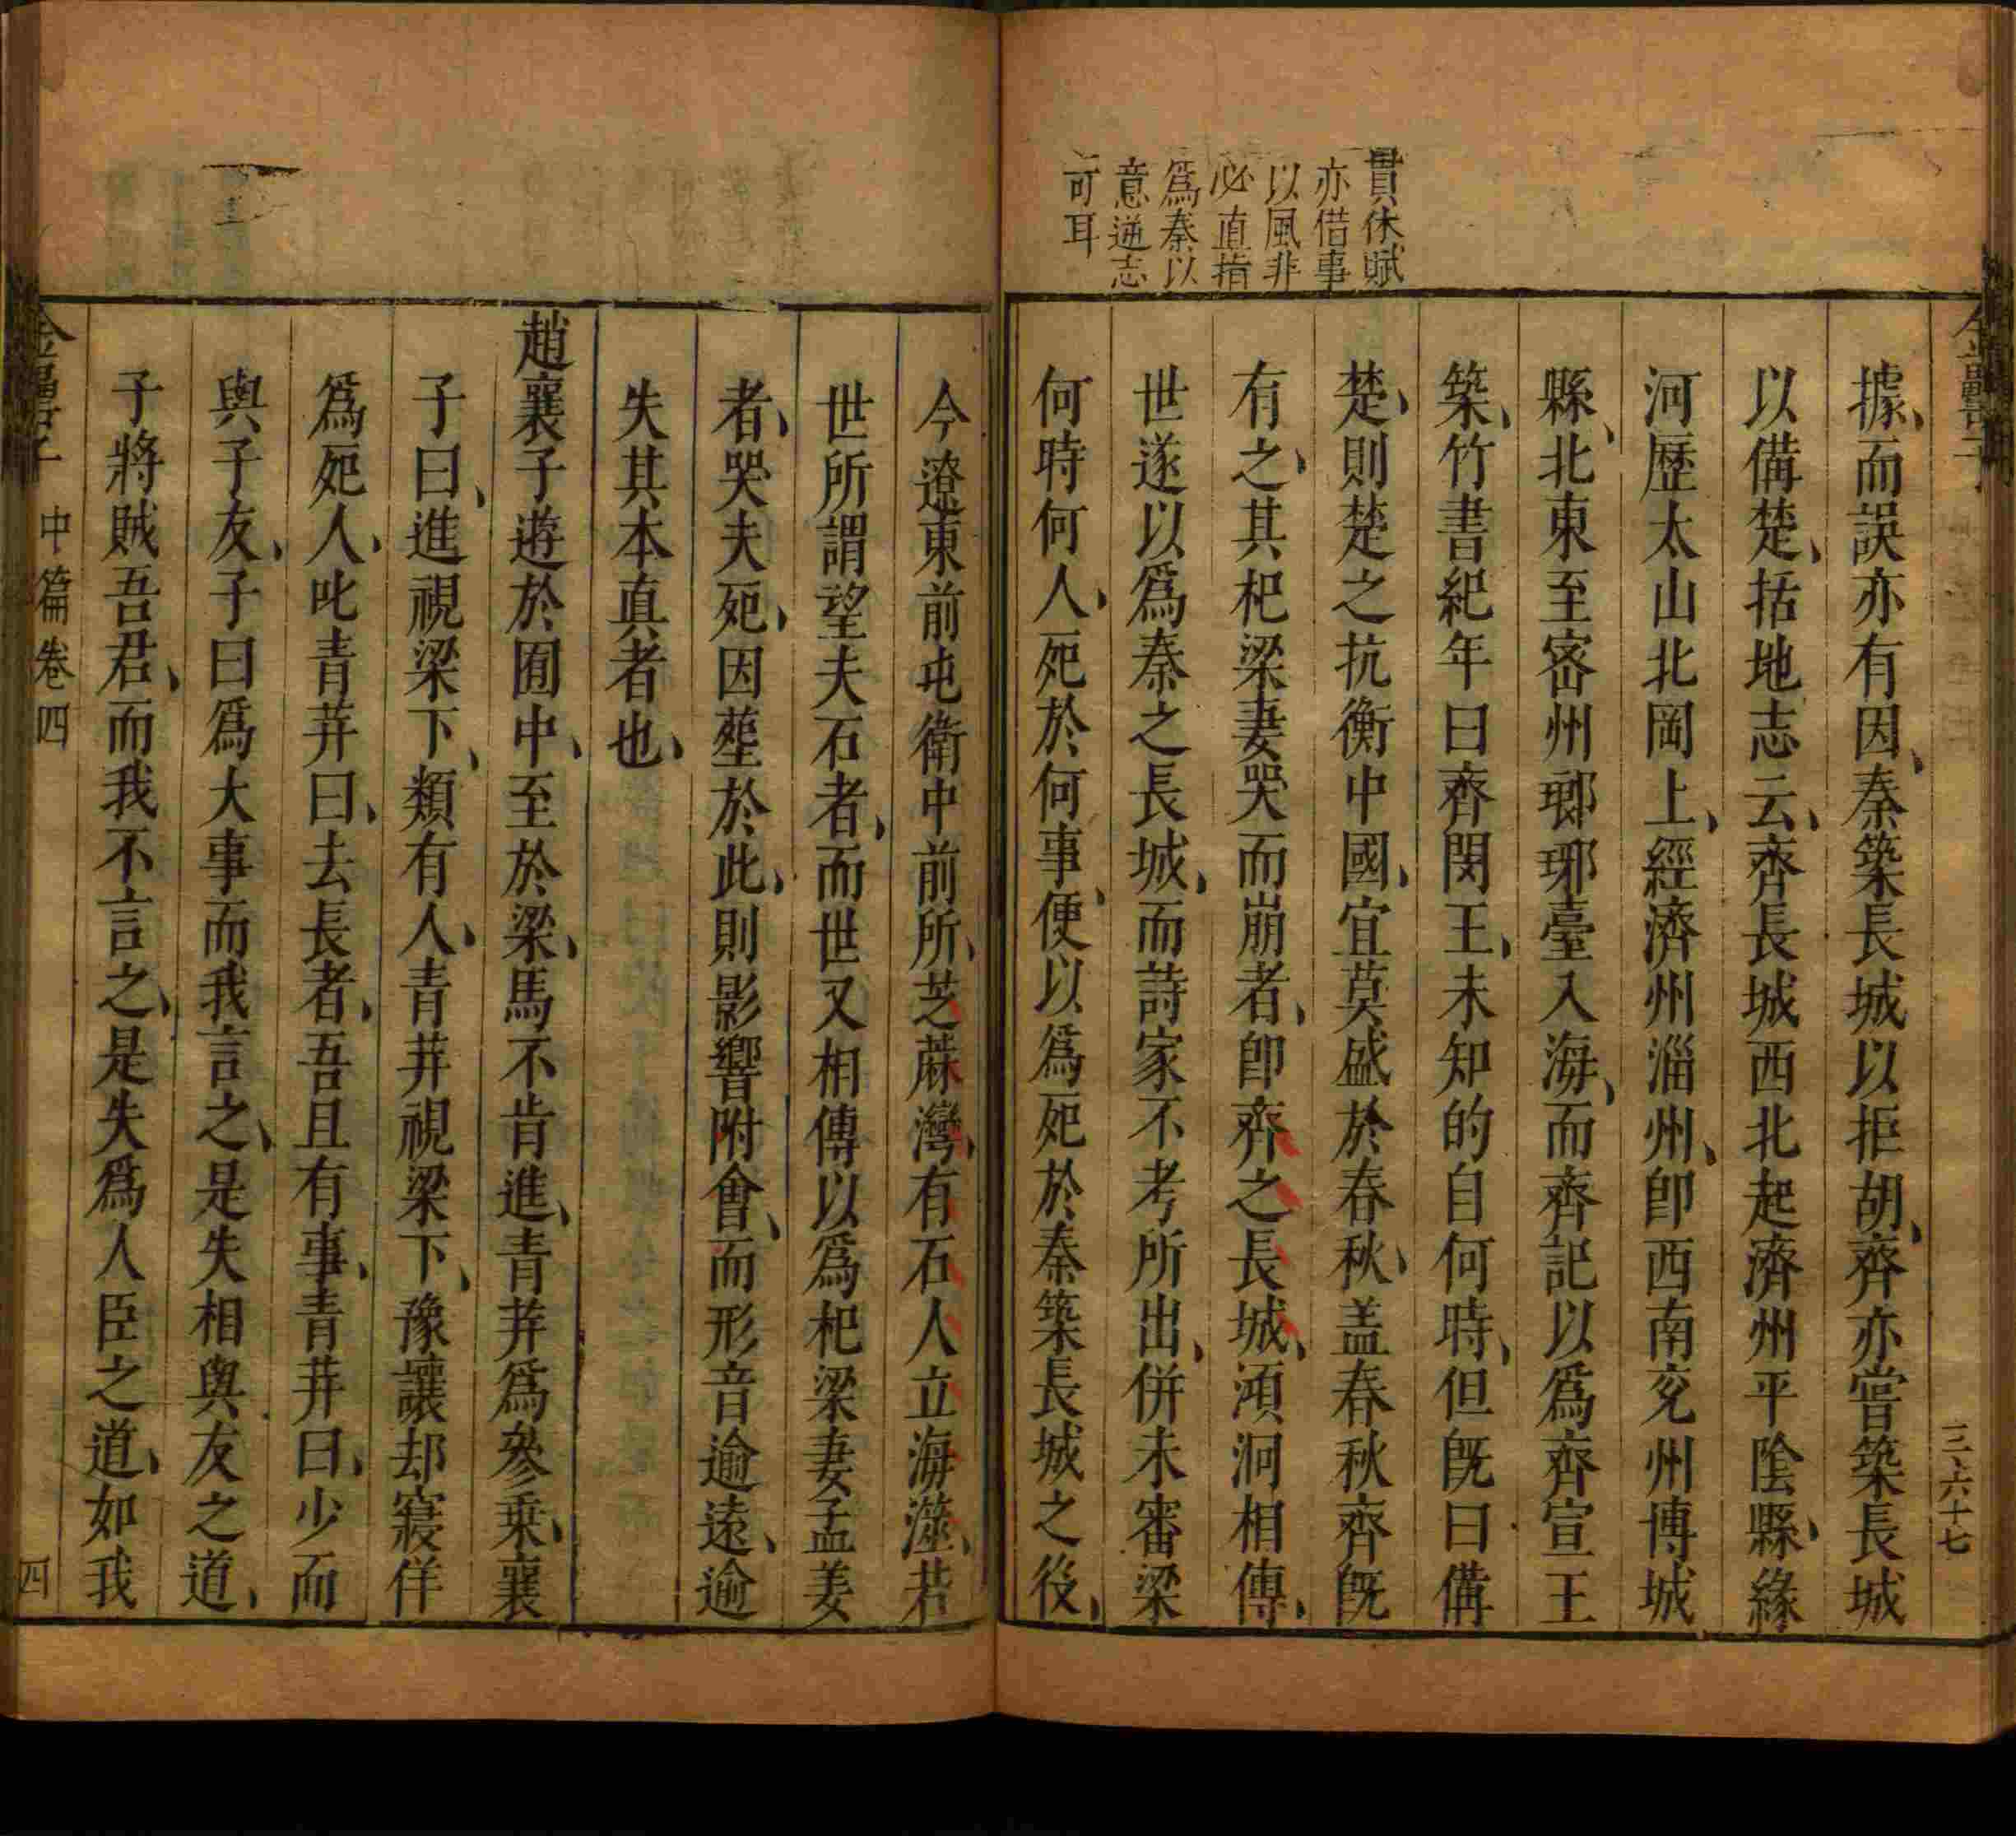 貫休賦
亦借事
以風非
必直指
爲秦以
意逆志
可耳
三六十七
據而誤亦有因秦築長城以拒胡齊亦嘗築長城
以備楚括地志云齊長城西北起濟州平陰縣緣
河歷太山北岡上經濟州淄州卽西南兖州博城
縣北東至密州瑯琊臺入海而齊記以爲齊宣王
築竹書紀年曰齊閔王未知的自何時但旣曰備
楚則楚之抗衡中國宜莫盛於春秋盖春秋齊旣
有之其杞梁妻哭而崩者卽齊之長城澒洞相傳
世遂以爲秦之長城而詩家不考所出併未審梁
何時何人死於何事便以爲死於秦築長城之後
今遼東前屯衛中前所芝蔴灣有石人立海澨若
世所謂望夫石者而世又相傳以爲杞梁妻孟姜
者哭夫死因塟於此則影響附會而形音逾遠逾
失其本真者也
趙襄子遊於囿中至於梁馬不肯進青荓爲參乗襄
子曰進視梁下類有人青荓視梁下豫讓却寢佯
爲死人叱青荓曰去長者吾且有事青荓曰少而
與子友子曰爲大事而我言之是失相與友之道
子將賊吾君而我不言之是失爲人臣之道如我
金罍子 中篇卷四 四